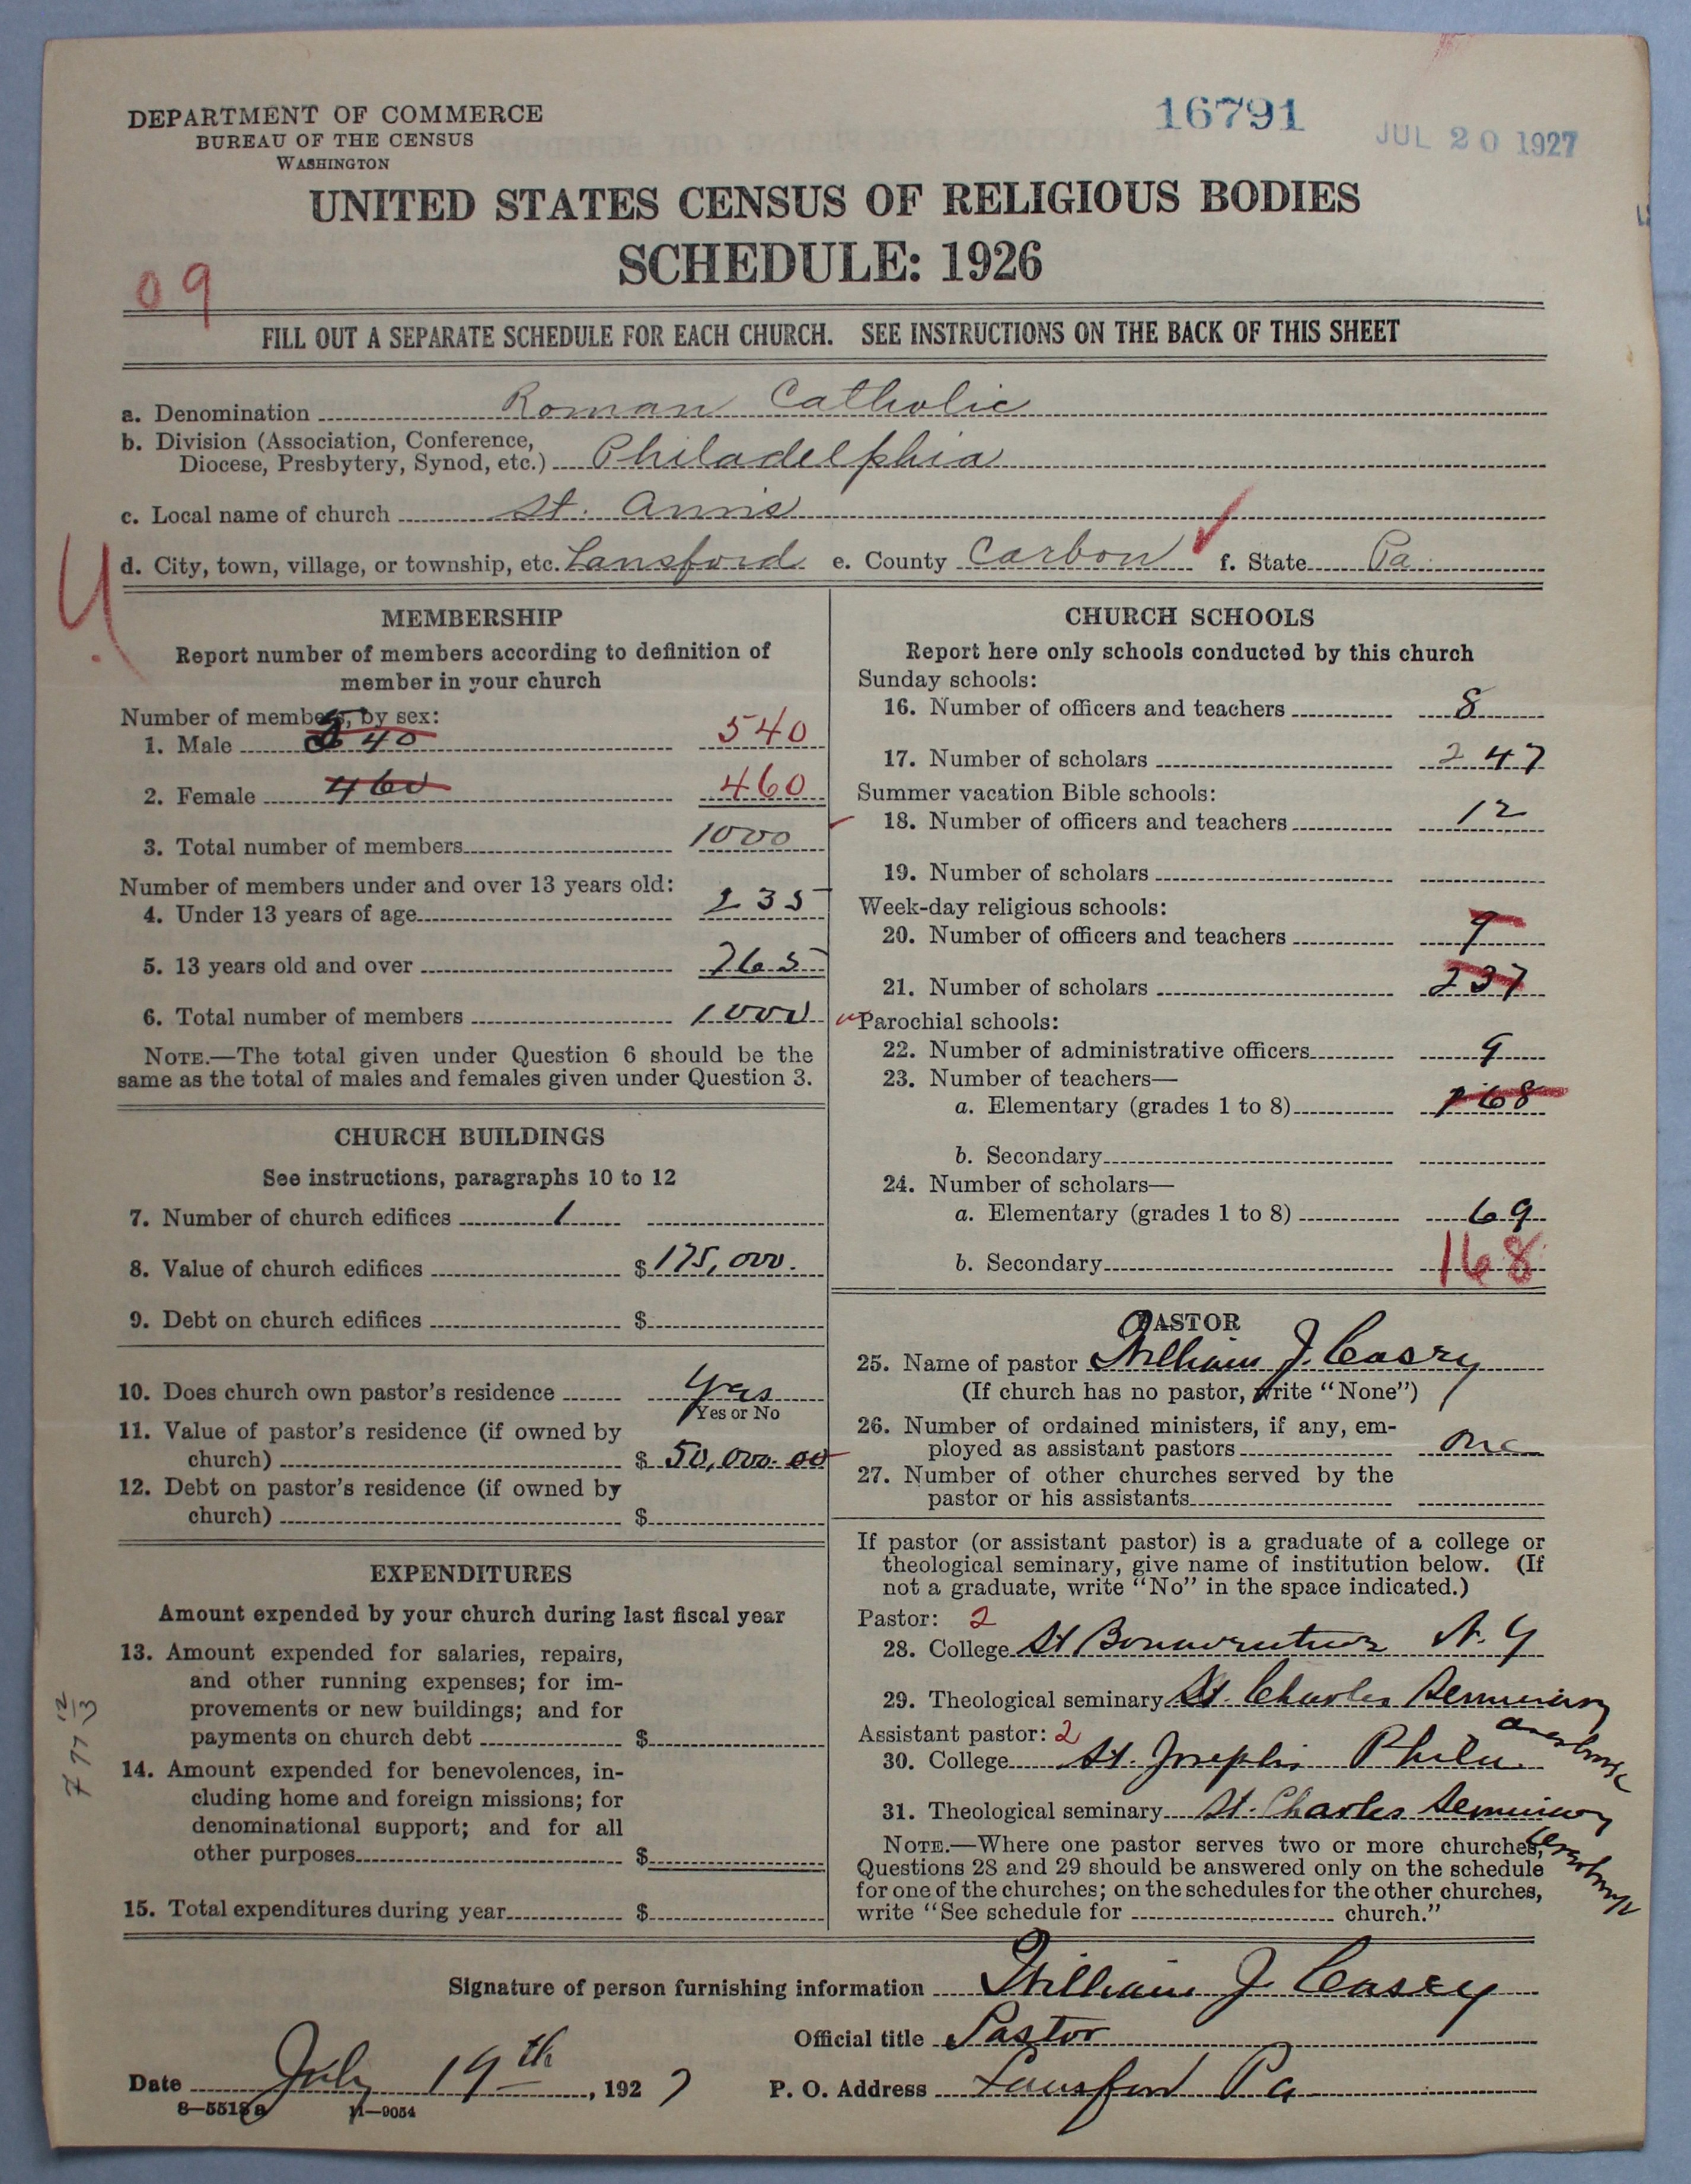 DEPARTMENT OF COMMERCE
BUREAU OF THE CENSUS
WASHINGTON
16791
JUL 20 1927
UNITED STATES CENSUS OF RELIGIOUS BODIES
SCHEDULE: 1926
09
FILL OUT A SEPARATE SCHEDULE FOR EACH CHURCH. SEE INSTRUCTIONS ON THE BACK OF THIS SHEET
a. Denomination Roman Catholic
b. Division (Association, Conference,
Diocese, Presbytery, Synod, etc.) Philadelphia
c. Local name of church St. Anns
d. City, town, village, or township, etc. Lansford e. County Carbon f. State Pa.
MEMBERSHIP
Report number of members according to definition of
member in your church
Number of members, by sex:
1. Male 540 540
2. Female 460 460
3. Total number of members 1000
Number of members under and over 13 years old:
4. Under 13 years of age 235
5. 13 years old and over 765
6. Total number of members 1000
NOTE.—The total given under Question 6 should be the
same as the total of males and females given under Question 3.
CHURCH BUILDINGS
See instructions, paragraphs 10 to 12
7. Number of church edifices 1
8. Value of church edifices $ 175,000.
9. Debt on church edifices $
10. Does church own pastor's residence Yes
Yes or No
11. Value of pastor's residence (if owned by
church) $ 50,000.00
12. Debt on pastor's residence (if owned by
church) $
EXPENDITURES
Amount expended by your church during last fiscal year
13. Amount expended for salaries, repairs,
and other running expenses; for im-
provements or new buildings; and for
payments on church debt $
14. Amount expended for benevolences, in-
cluding home and foreign missions; for
denominational support; and for all
other purposes $
15. Total expenditures during year $
CHURCH SCHOOLS
Report here only schools conducted by this church
Sunday schools:
16. Number of officers and teachers 8
17. Number of scholars 247
Summer vacation Bible schools:
18. Number of officers and teachers 12
19. Number of scholars
Week-day religious schools:
20. Number of officers and teachers 9
21. Number of scholars 237
Parochial schools:
22. Number of administrative officers 9
23. Number of teachers—
a. Elementary (grades 1 to 8) 168
b. Secondary
24. Number of scholars—
a. Elementary (grades 1 to 8) 69
b. Secondary 168
PASTOR
25. Name of pastor William J. Casey
(If church has no pastor, write "None")
26. Number of ordained ministers, if any, em-
ployed as assistant pastors one
27. Number of other churches served by the
pastor or his assistants
If pastor (or assistant pastor) is a graduate of a college or
theological seminary, give name of institution below. (If
not a graduate, write "No" in the space indicated.)
Pastor: 2
28. College St Bonaventure N.Y
29. Theological seminary St. Charles Seminary
Overbrook
Assistant pastor: 2
30. College St. Josephs Phila.
31. Theological seminary St. Charles Seminary
Overbrook
NOTE.—Where one pastor serves two or more churches,
Questions 28 and 29 should be answered only on the schedule
for one of the churches; on the schedules for the other churches,
write "See schedule for church."
Signature of person furnishing information William J. Casey
Official title Pastor
Date July 19th, 1927 P. O. Address Lansford Pa
8—5518a 11—9054